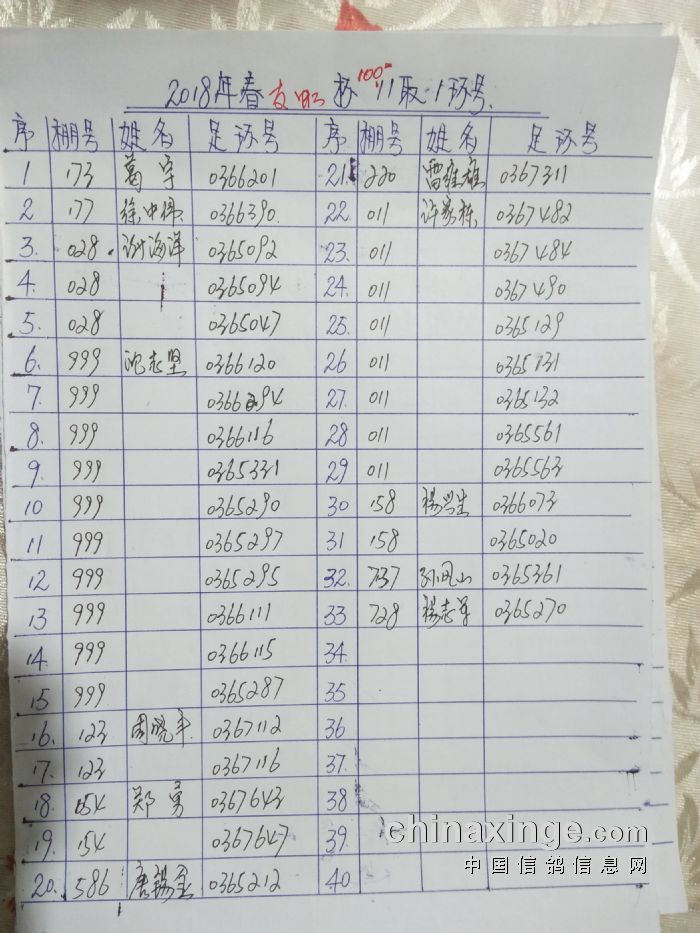 2018年春友 杯 100元 11取1环号
序 棚号 姓名 足环号 序 棚号 姓名 足环号
1 173 葛宇 0366201 21. 220 雷雄 0367311
2 177 徐中伟 0366390. 22. 011 许家栋 0367482
3. 028. 谢海洋 0365092 23. 011 0367484
4. 028 0365094 24. 011 0367490
5. 028 0365047 25. 011 0365129
6. 999 沈志坚 0366120 26 011 0365131
7. 999 0366294 27. 011 0365132
8. 999 0366116 28 011 0365561
9. 999 0365331 29 011 0365563
10 999 0365290 30 158 杨兴生 0366073
11 999 0365297 31 158 0365020
12 999 0365295 32. 737 孙凤山 0365361
13 999 0366111 33 728 杨志军 0365270
14. 999 0366115 34.
15 999 0365287 35
16. 123 周晓平 0367112 36
17. 123 0367116 37.
18. 154 郑勇 0367643 38
19. 154 0367647 39.
20. 586 唐锡金 0365212 40
chinaxinge.com
中国信鸽信息网